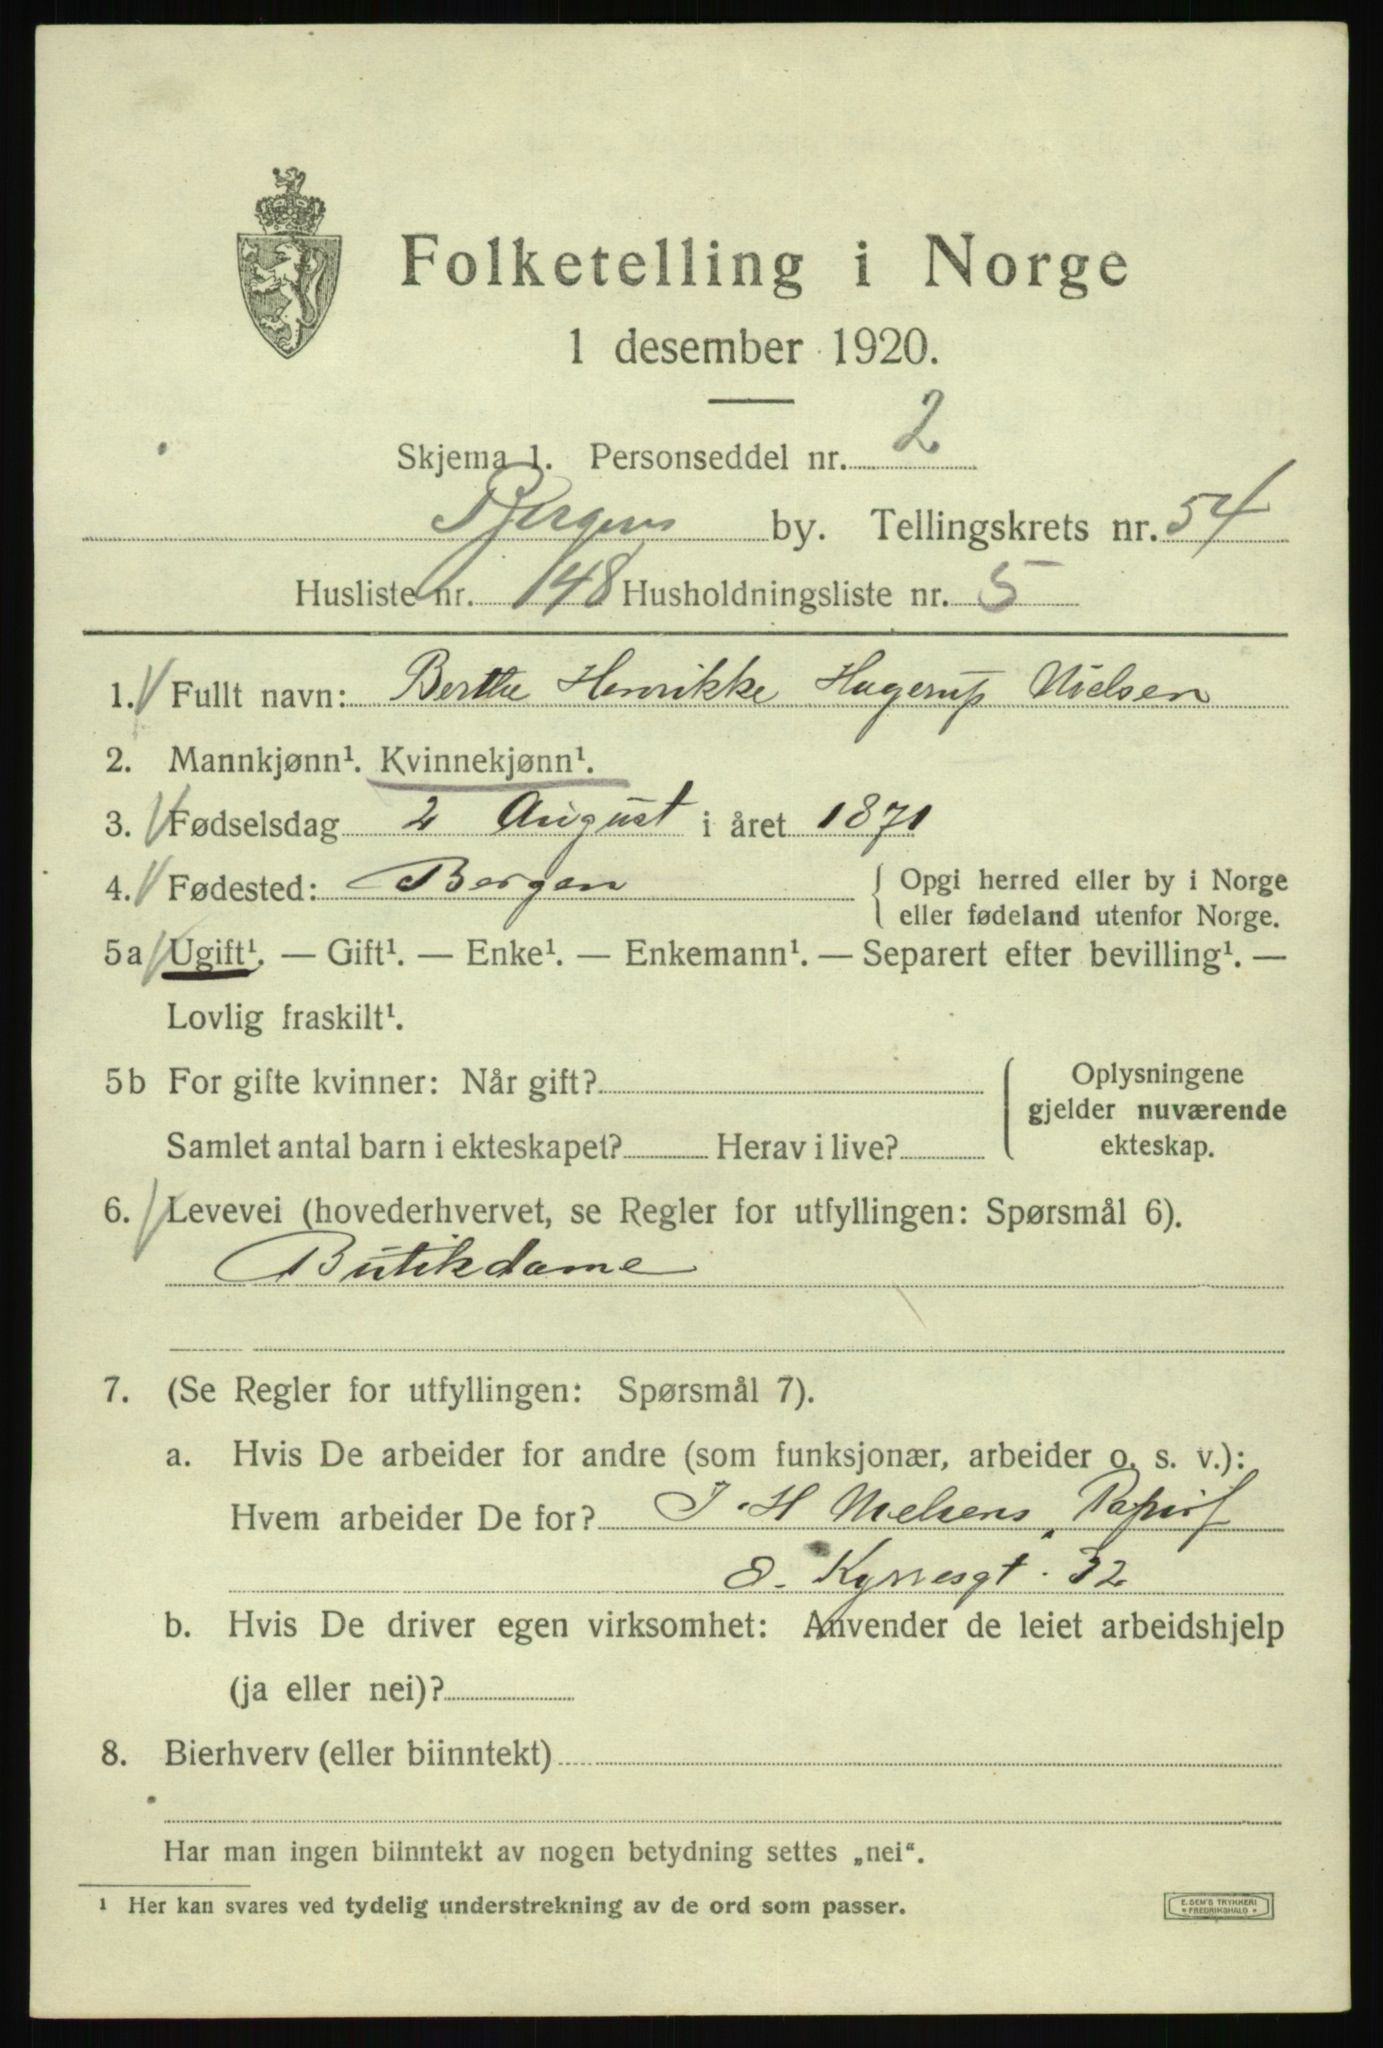 Folketelling i Norge
1 desember 1920.
Skjema 1. Personseddel nr. 2
Bergens by. Tellingskrets nr. 54
Husliste nr. 148 Husholdningsliste nr. 5
1. Fullt navn: Berthe Henrikke Hagerup Nielsen
2. Mannkjønn¹. Kvinnekjønn¹.
3. Fødselsdag 2 August i året 1871
4. Fødested: Bergen { Opgi herred eller by i Norge
eller fødeland utenfor Norge.
5a Ugift¹. — Gift¹. — Enke¹. — Enkemann¹. — Separert efter bevilling¹. —
Lovlig fraskilt¹.
5b For gifte kvinner: Når gift? { Oplysningene
gjelder nuværende
Samlet antal barn i ekteskapet? Herav i live? ekteskap.
6. Levevei (hovederhvervet, se Regler for utfyllingen: Spørsmål 6).
Butikdame
7. (Se Regler for utfyllingen: Spørsmål 7).
a. Hvis De arbeider for andre (som funksjonær, arbeider o. s. v.):
Hvem arbeider De for? J. H Nielsens Papirf
O. Kyrresgt. 32
b. Hvis De driver egen virksomhet: Anvender de leiet arbeidshjelp
(ja eller nei)?
8. Bierhverv (eller biinntekt)
Har man ingen biinntekt av nogen betydning settes „nei“.
¹ Her kan svares ved tydelig understrekning av de ord som passer.
E. SEM'S TRYKKERI
* FREDRIKSHALD *